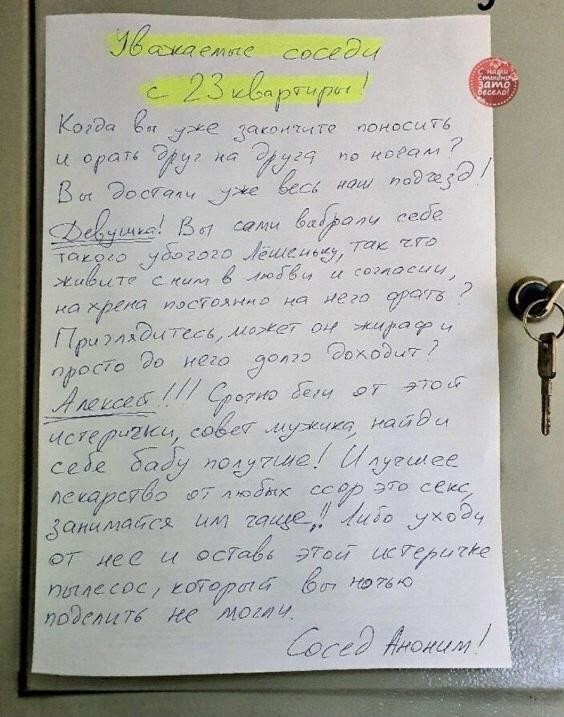 Уважаемые соседи
с 23 квартиры!
С нами
стыдно
зато
весело!
Когда вы уже закончите поносить
и орать друг на друга по ночам?
Вы достали уже весь наш подъезд!
Девушка! Вы сами выбрали себе
такого убогого Лёшеньку, так что
живите с ним в любви и согласии,
нахрена постоянно на него орать?
Приглядитесь, может он жираф и
просто до него долго доходит?
Алексей!!! Срочно беги от этой
истерички, совет мужика, найди
себе бабу получше! И лучшее
лекарство от любых ссор это секс,
занимайся им чаще!! Либо уходи
от нее и оставь этой истеричке
пылесос, который вы ночью
поделить не могли.
Сосед Аноним!